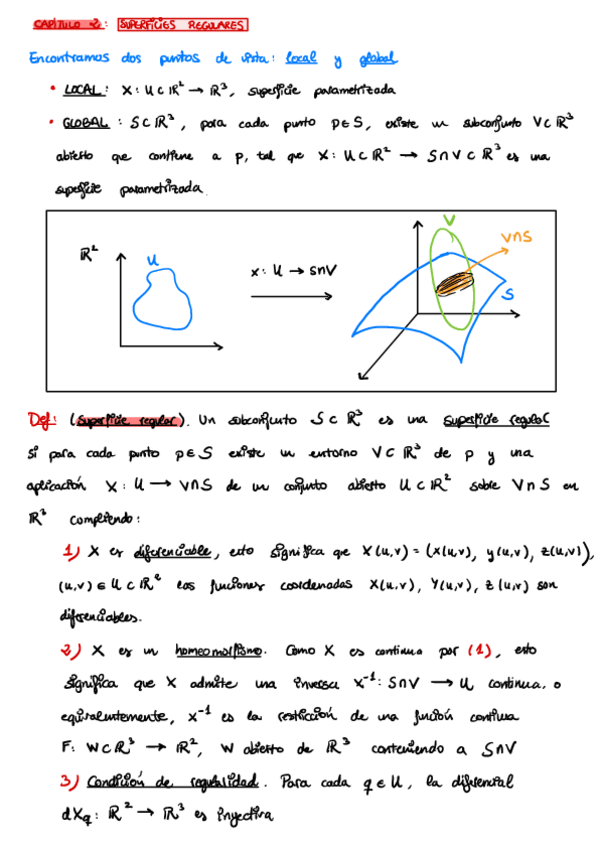 CAPÍTULO 2: SUPERFICIES REGULARES
Encontramos dos puntos de vista: local y global
• LOCAL: X: U ⊂ ℝ² → ℝ³, superficie parametrizada
• GLOBAL: S ⊂ ℝ³, para cada punto p ∈ S, existe un subconjunto V ⊂ ℝ³
abierto que contiene a p, tal que X: U ⊂ ℝ² → S∩V ⊂ ℝ³ es una
superficie parametrizada.
ℝ²
U
x: U → S∩V
V
V∩S
S
Def: (Superficie regular). Un subconjunto S ⊂ ℝ³ es una superficie regular
si para cada punto p ∈ S existe un entorno V ⊂ ℝ³ de p y una
aplicación X: U → V∩S de un conjunto abierto U ⊂ ℝ² sobre V∩S en
ℝ³ cumpliendo:
1) X es diferenciable, esto significa que X(u,v) = (x(u,v), y(u,v), z(u,v)),
(u,v) ∈ U ⊂ ℝ² las funciones coordenadas X(u,v), Y(u,v), z(u,v) son
diferenciables.
2) X es un homeomorfismo. Como X es continua por (1), esto
significa que X admite una inversa x⁻¹: S∩V → U continua. o
equivalentemente, x⁻¹ es la restricción de una función continua
F: W ⊂ ℝ³ → ℝ², W abierto de ℝ³ conteniendo a S∩V
3) Condición de regularidad. Para cada q ∈ U, la diferencial
dX_q: ℝ² → ℝ³ es inyectiva